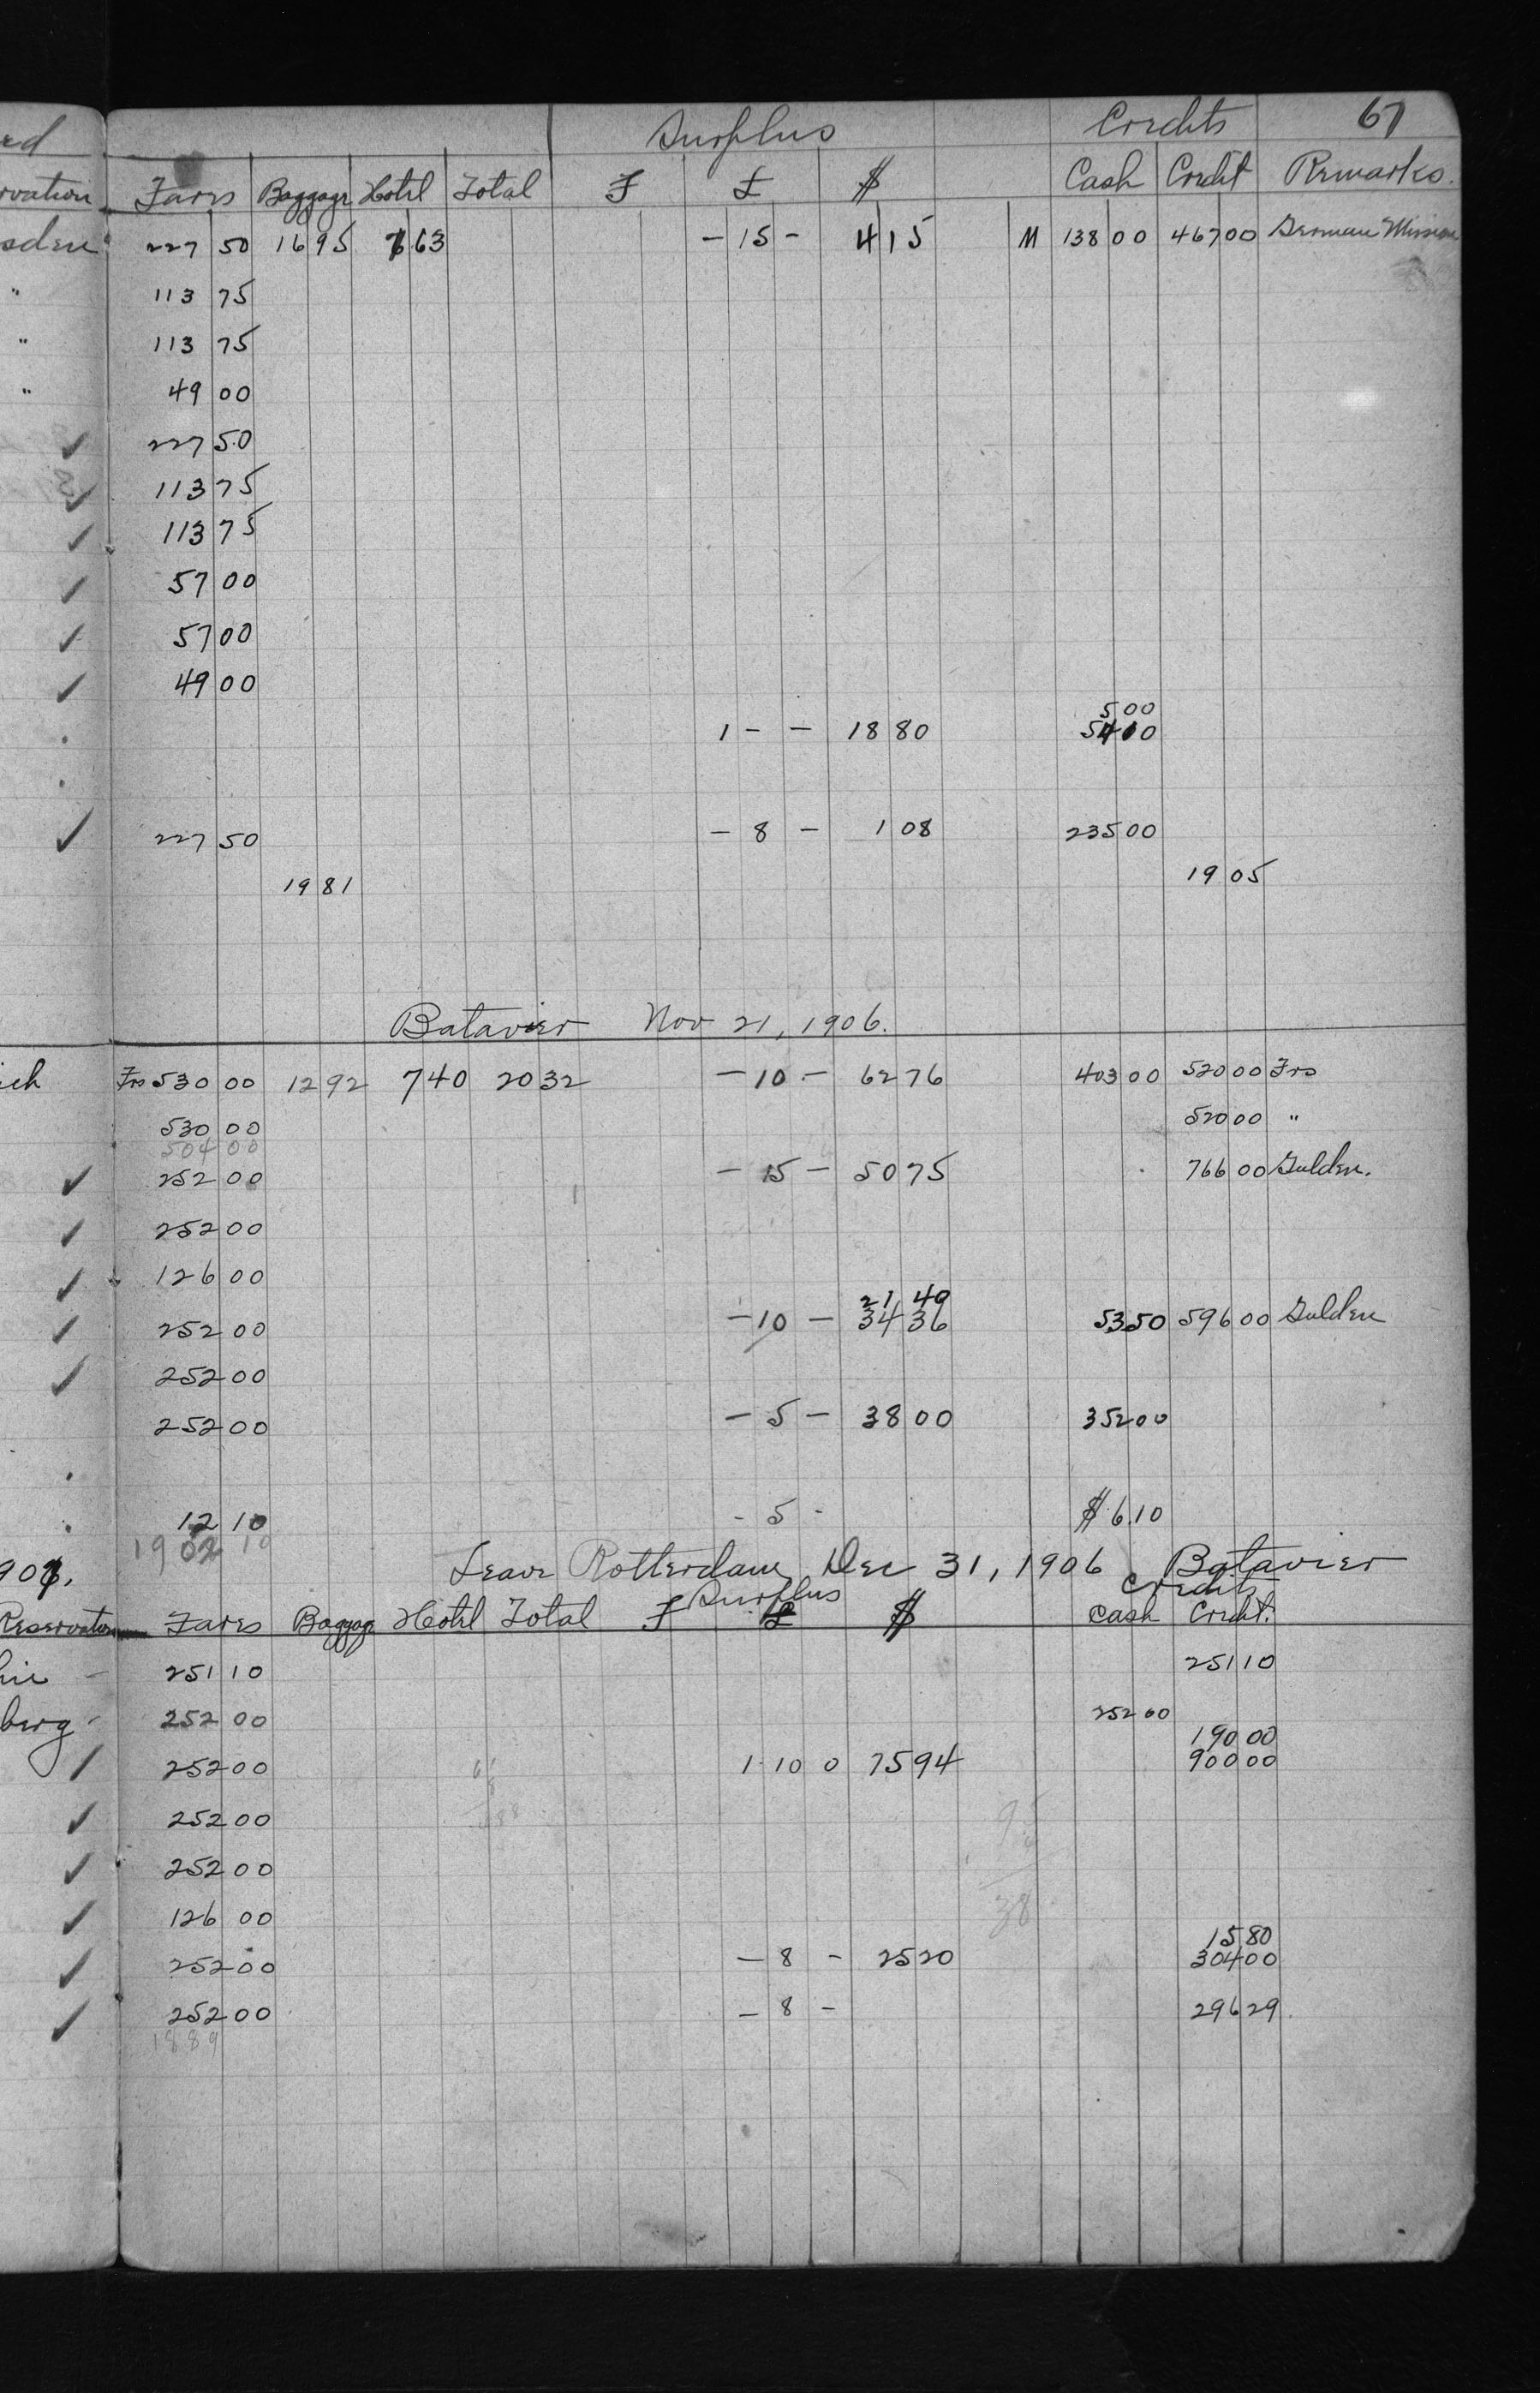 Surplus Credits 67
Fares Baggage Hotel Total F £ $ Cash Credit Remarks.
sden 227 50 16 95 7 63 - 15 - 4 15 M 138 00 467 00 German Mission
" 113 75
" 113 75
" 49 00
✓ 227 50
✓ 113 75
✓ 113 75
✓ 57 00
✓ 57 00
✓ 49 00
5 00
1 - - 18 80 54 10
✓ 227 50 - 8 - 1 08 235 00
19 81 19 05
Batavier Nov 21, 1906.
ich Frs 530 00 12 92 7 40 20 32 - 10 - 62 76 403 00 520 00 Frs
530 00 520 00 "
504 00
✓ 252 00 - 15 - 50 75 766 00 Gulden.
✓ 252 00
✓ 126 00
21 40
✓ 252 00 - 10 - 34 36 53 50 596 00 Gulden
✓ 252 00
252 00 - 5 - 38 00 352 00
12 10 - 5 - $ 6.10
1902 10
Leave Rotterdam Dec 31, 1906 Batavier
Surplus Credits
Reservation Fares Baggage Hotel Total F £ $ Cash Credit.
hie - 251 10 251 10
berg - 252 00 252 00
190 00
✓ 252 00 1 10 0 75 94 900 00
✓ 252 00
✓ 252 00
✓ 126 00
38
15 80
✓ 252 00 - 8 - 25 20 304 00
✓ 252 00 - 8 - 296 29
1889